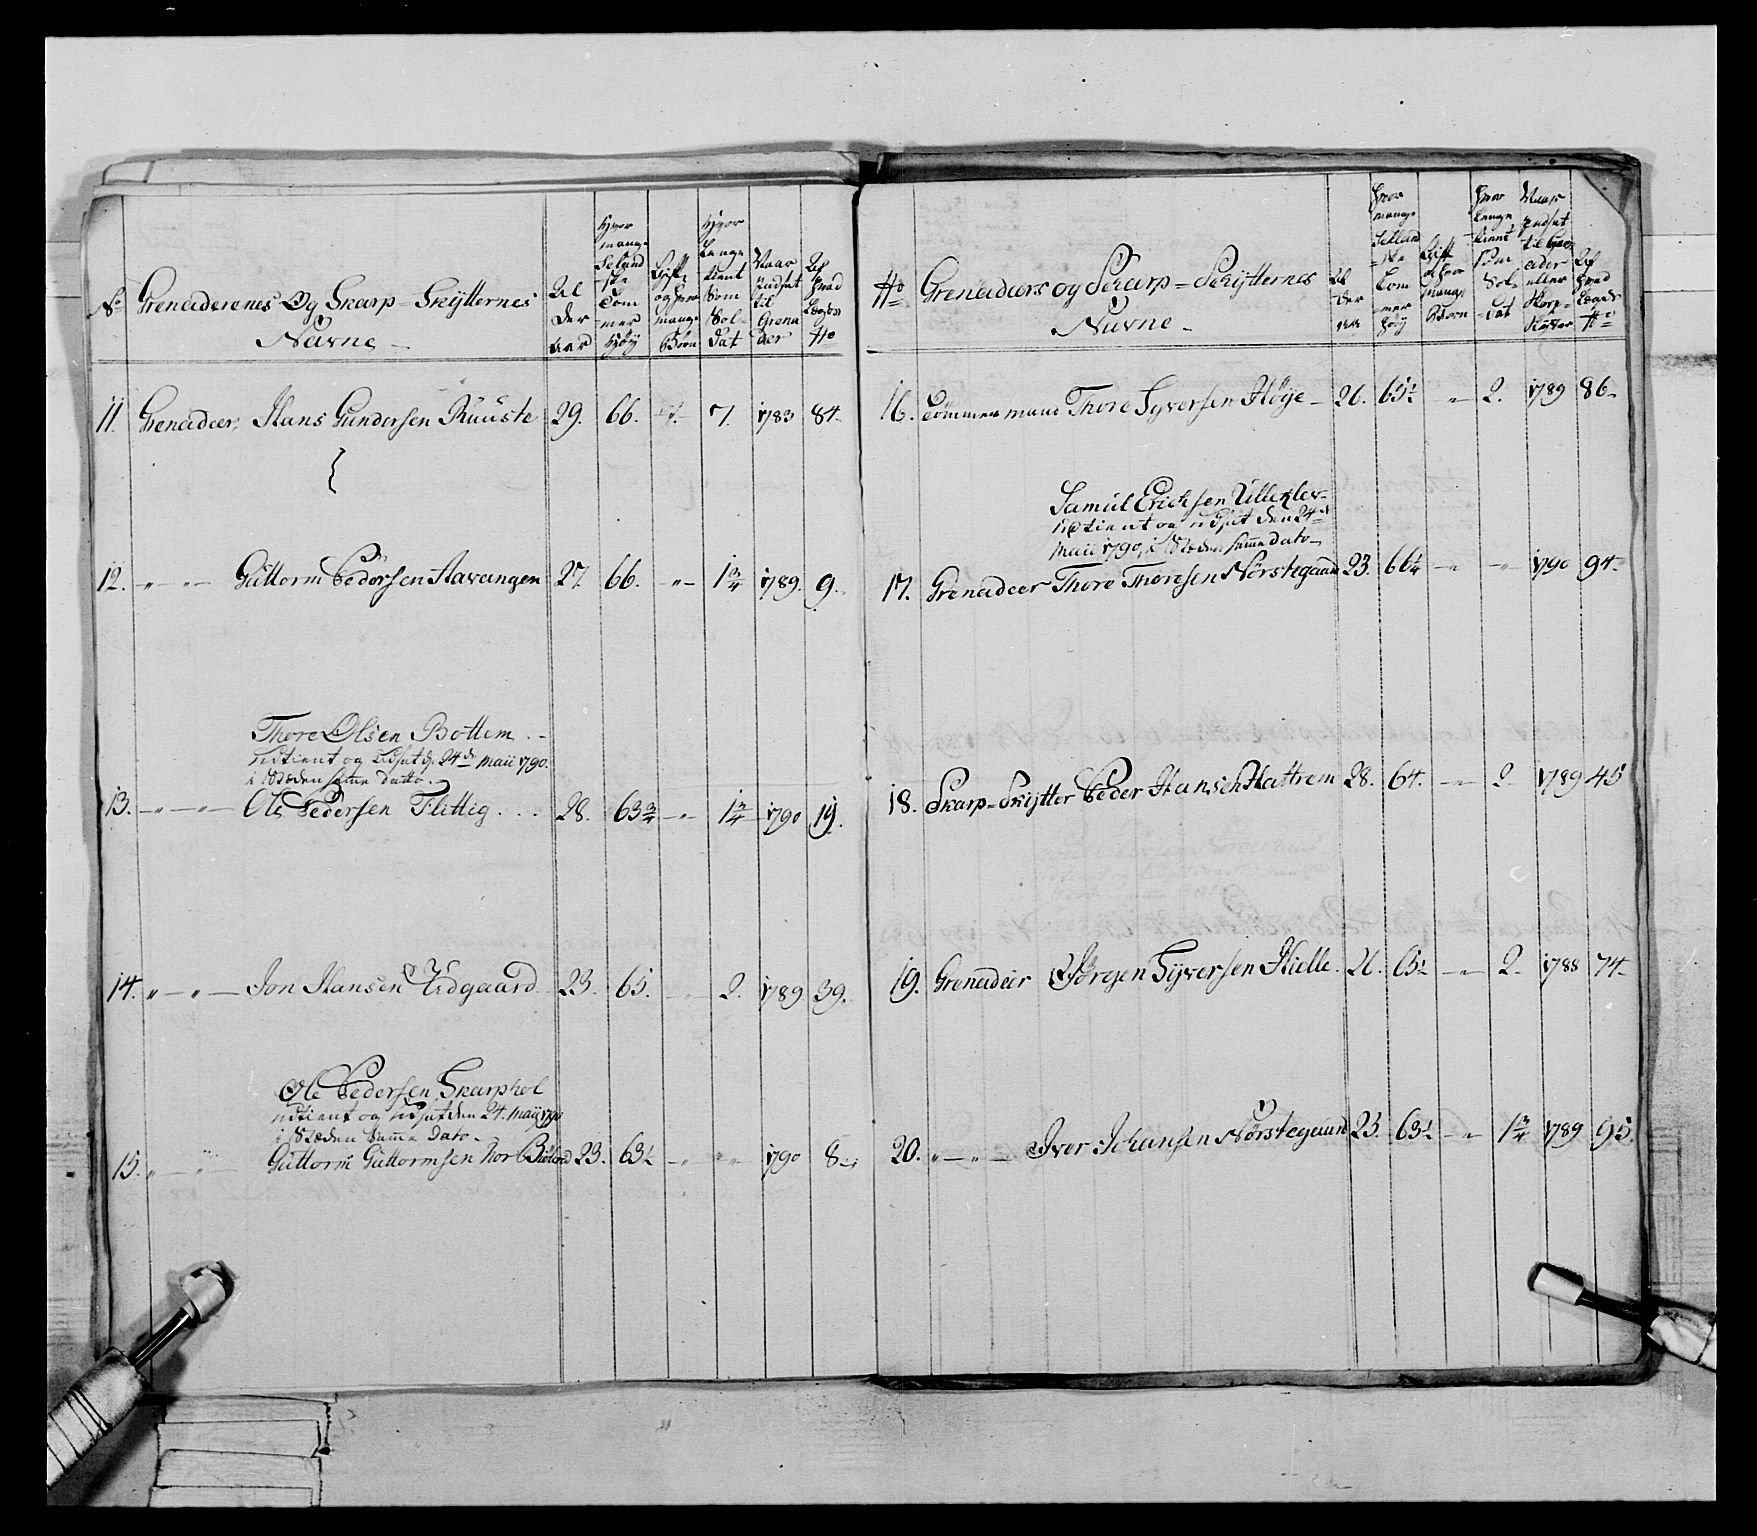 No Grenaderenes Og Skarp-Skÿtternes
Navne -
Al
der
aar
Hvor
mange
Seland
ske
Tom
mer
Høÿ
Gift
og Hvor
mange
Børn
Hvor
Lenge
tient
Som
Sol-
dat
Naar
Indsat
til
Grena
deer
Af
Hvad
Lægds
No
11. Grenadeer, Hans Gundersen Ruuste 29. 66. 7. 1783 84
12. " — " — Guttorm Pedersen Havangen 27. 66. — " — 1 3/4 1789. 9.
Thore Olsen Bottem . -
udtient og udsat d. 24de Maii 1790.
i Stæden samme datto -
13. — " — " — Ole Pedersen Flittig . . . 28. 63 3/4 — " — 1 3/4 1790 19.
14. " — " — Jon Hansen Vidgaard 23. 65. 2. 1789 39.
Ole Pedersen Skarphol
udtient og udsat den 24. Maij 1790
i Stæden samme dato -
15. " — " Guttorm Guttormsen Nor Biølerd 23. 63 1/2 — " — " " 1790 8
No Grenadeers og Skarp-Schÿtternes
Navne -
Al
der
aar
Hvor
mange
Selland
ske
Tom
mer
høÿ
Gift
og hvor
mange
Børn
Hvor
lenge
tient
som
Sol
dat
Naar
Indsat
til Gren
adeer
eller
Skarp-
Skÿtter
Af
Hvad
Lægds
No
16. Tømmermand Thore Syversen Høÿe - 26. 65 1/2 " 2. 1789 86
Samuel Erichsen Ulleklev
udtient og udsat den 24de
Maii 1790, i Stæden samme dato -
17. Grenadeer Thore Thoresen Nørstegaard 23. 66 1/4 — " — " — 1790 94
18. Skarp-Skÿtter Peder Hansen Hattrem 28. 64. — " — 2 1789 45
19. Grenadeer Jørgen Syversen Hielle 26. 65 1/2 — " — 2. 1788 74
20. " — " — Iver Johansen Nørstegaard 23. 63 1/2 — " 1 3/4 1789 95.